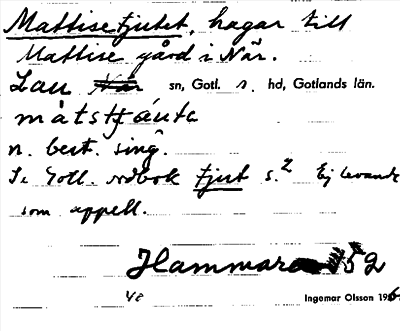 Mattisetjutet, hagar till
Mattise gård i När.
Lau När sn, Gotl. s. hd, Gotlands län.
n. best. sing.
Se Gotl. ordbok tjut s. 2 Ej levande
som appell.
Hammar 52
48 Ingemar Olsson 19